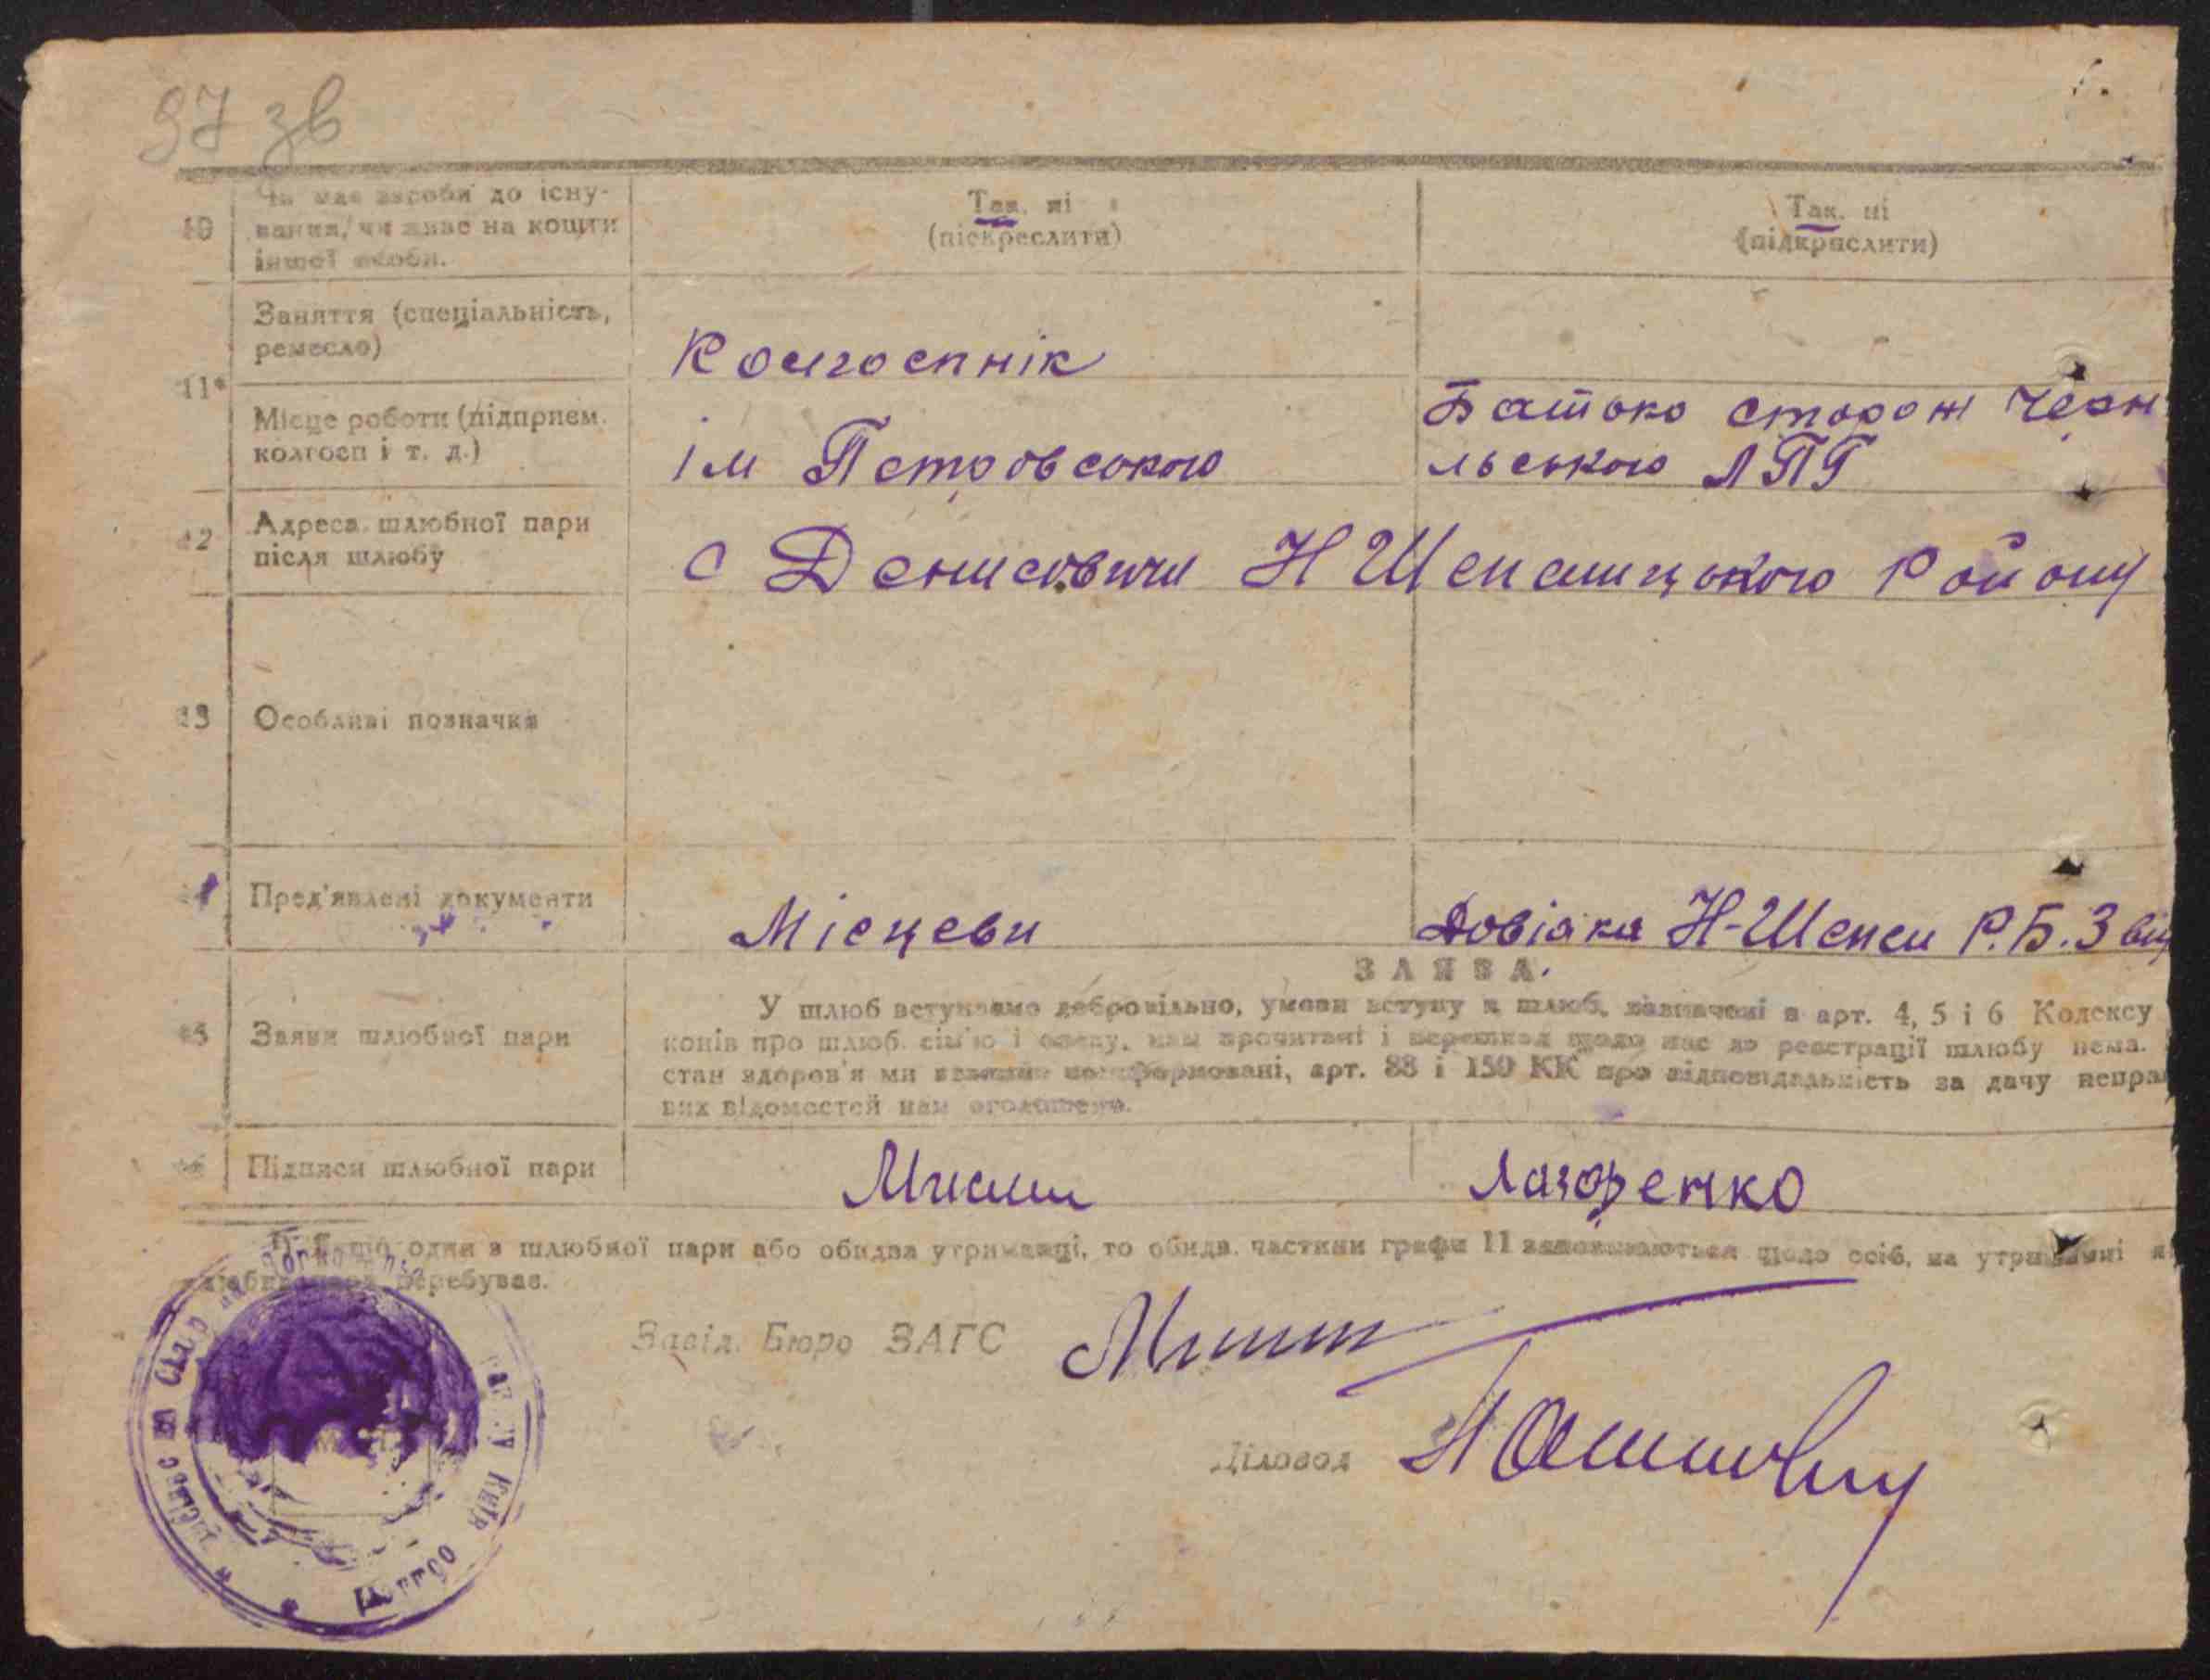 97 зв
10
Чи має засоби до існу-
вання, чи живе на кошти
іншої особи.
Так. ні
(піскреслити)
Так. ні
(підкрислити)
11*
Заняття (спеціальність,
ремесло)
Колгоспнік
Місце роботи (підприєм.
колгосп і т. д.)
ім Петровського
Батько сторож Черн
льського ЛПГ
12
Адреса шлюбної пари
після шлюбу
с Денисовичи Н Шепелицького Району
13
Особливі позначки
Пред'явлені документи
Місцеви
Довідка Н-Шепел Р.Б.З від
ЗАЯВА.
15
Заяви шлюбної пари
У шлюб вступаємо добровільно, умови вступу в шлюб, зазначені в арт. 4, 5 і 6 Кодексу
конів про шлюб. сім'ю і опеку, нам прочитані і перешкод щодо нас до реєстрації шлюбу нема.
стан здоров'я ми взаємно поінформовані, арт. 88 і 150 КК про відповідальність за дачу неправ
вих відомостей нам оголошено.
Підписи шлюбної пари
Лазоренко
один з шлюбної пари або обидва утриманці, то обидв. частини графи 11 заповнюються щодо осіб, на утриманні я
перебуває.
Завід. Бюро ЗАГС
Діловод